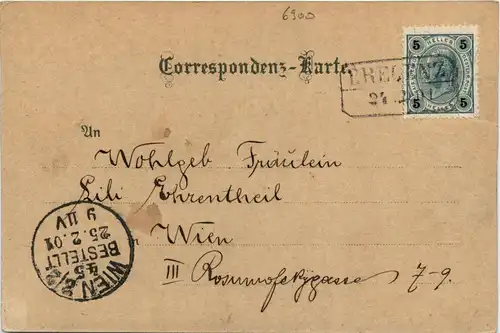 6900
Correspondenz-Karte
5 HELLER 5
5 5
24.2.01
An
Wohlgeb Fräulein
Lili Ehrentheil
Wien
III 7-9.
WIEN
45
BESTELLT
25.2.01
9 UV